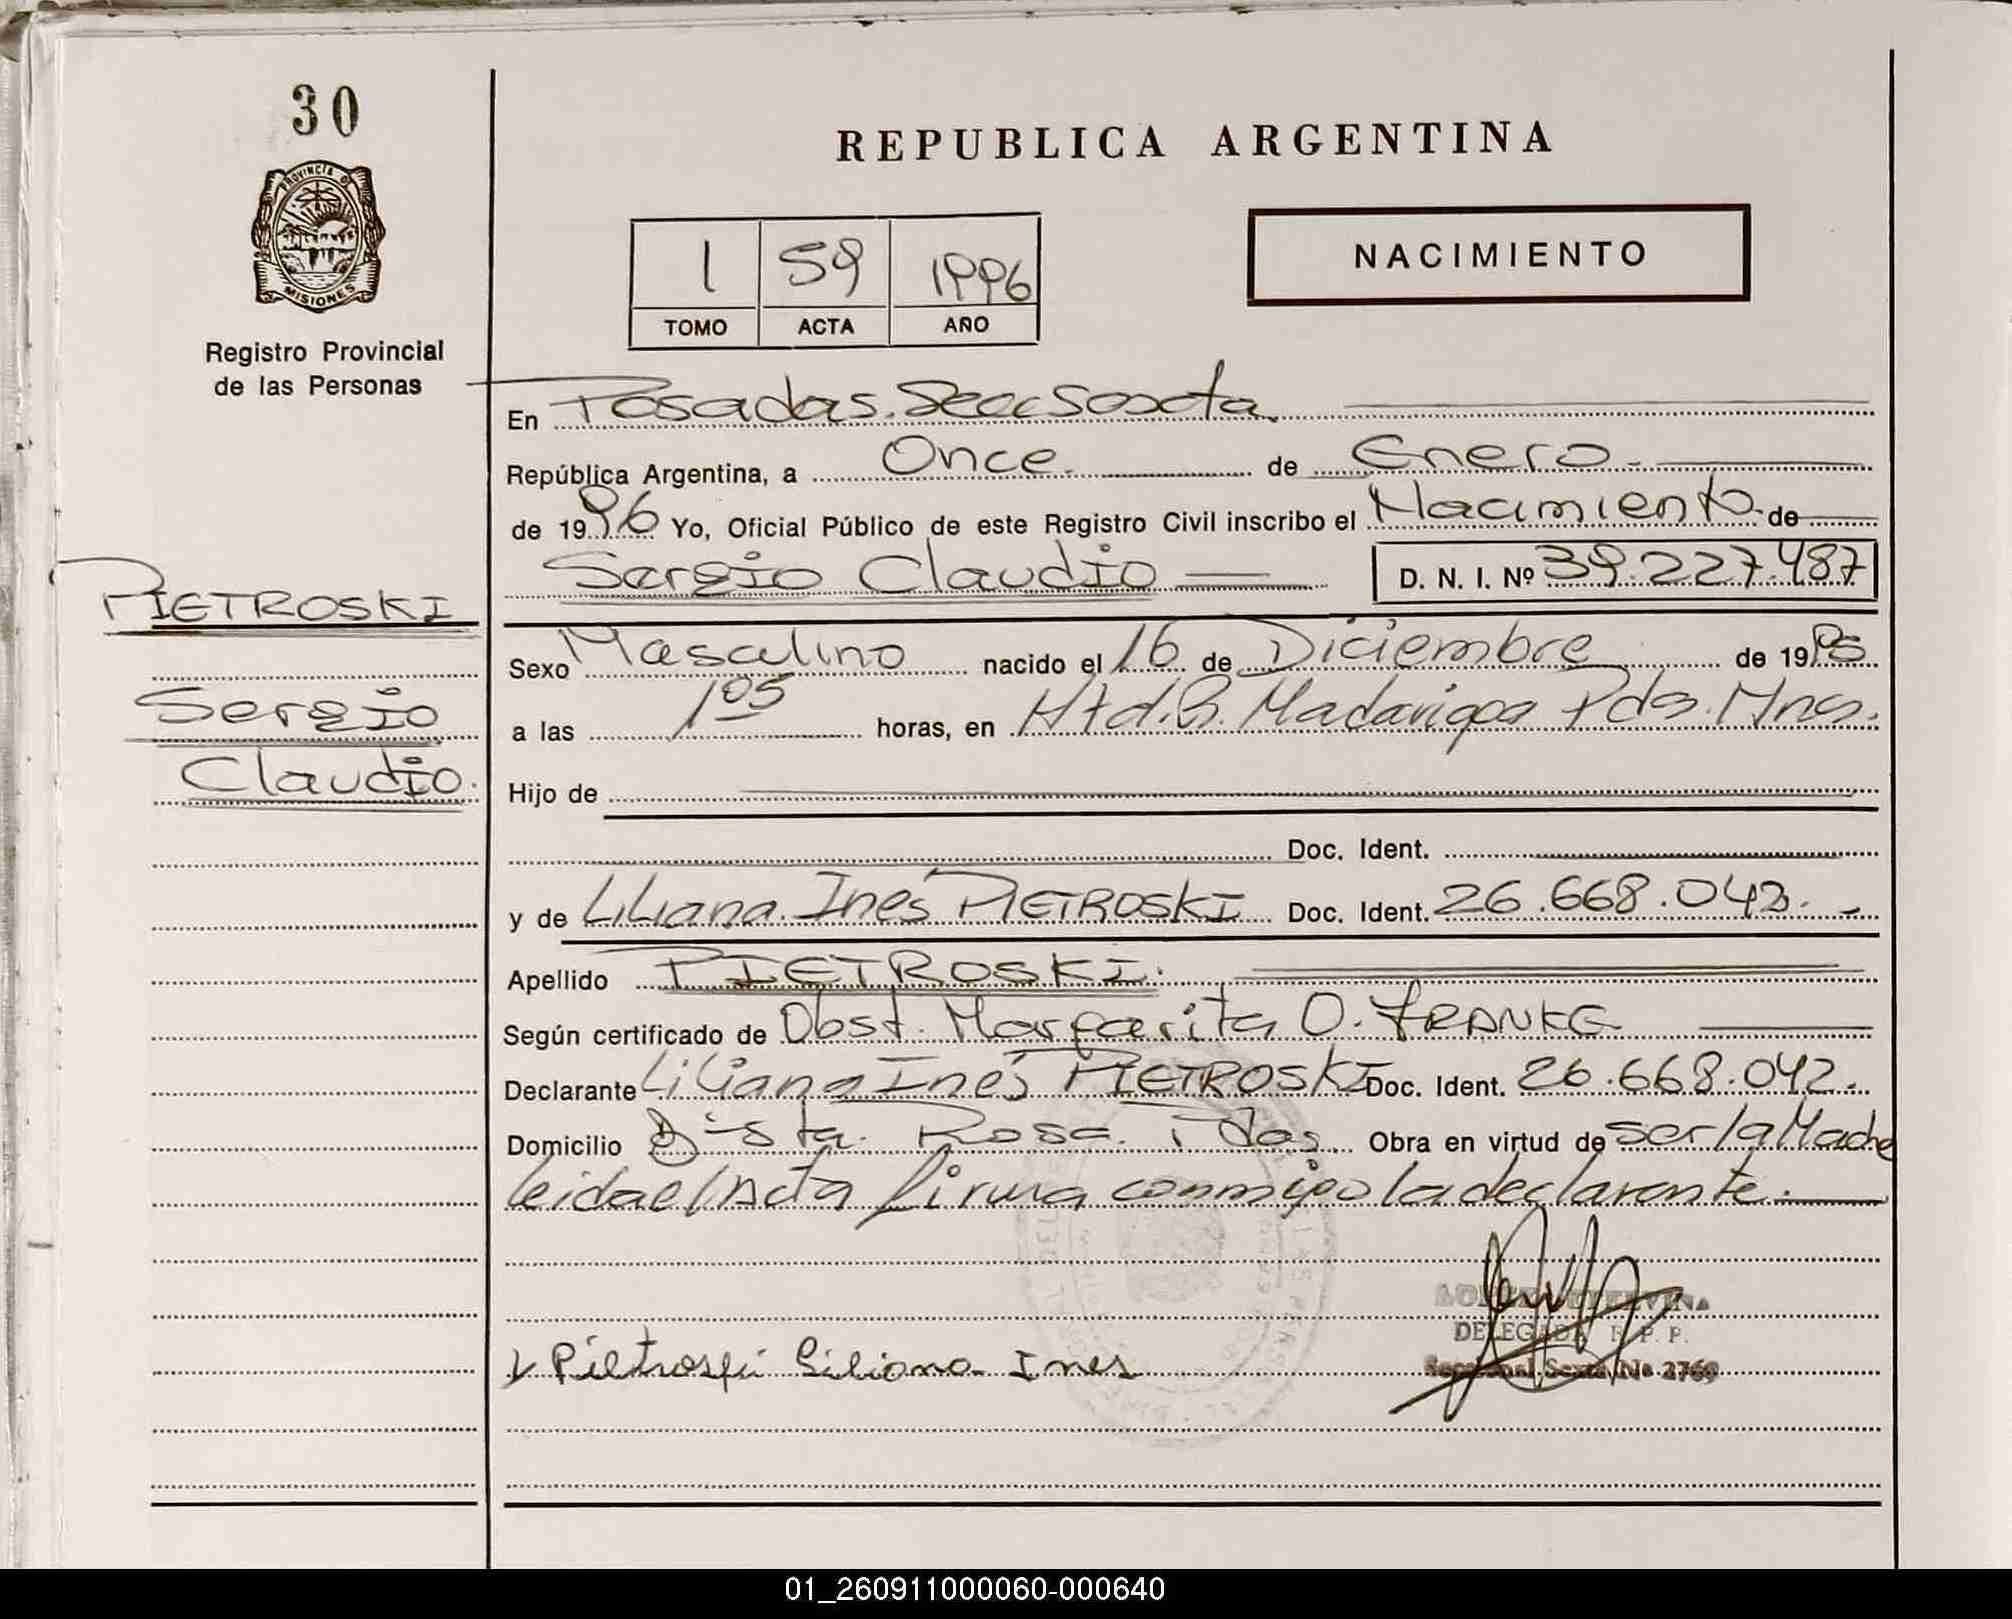 30
PROVINCIA DE
MISIONES
Registro Provincial
de las Personas
REPUBLICA ARGENTINA
NACIMIENTO
1 59 1996
TOMO ACTA AÑO
En Posadas. Secc Sexta
República Argentina, a Once de Enero
de 1996 Yo, Oficial Público de este Registro Civil inscribo el Nacimiento de
Sergio Claudio D. N. I. Nº 39.227.487
PIETROSKI
Sergio
Claudio.
Sexo Masculino nacido el 16 de Diciembre de 1995
a las 1 05 horas, en Htal. R. Madariaga Pdas. Mnes.
Hijo de
Doc. Ident.
y de Liliana Ines PIETROSKI Doc. Ident. 26.668.042.
Apellido PIETROSKI.
Según certificado de Obst. Margarita O. FRANKE
Declarante Liliana Inés PIETROSKI Doc. Ident. 26.668.042.
Domicilio Bº Sta. Rosa. Pdas. Obra en virtud de ser la Madre
leida el Acta firma conmigo la declarante.
DELEGADA R. P. P.
Seccional Sexta No 2769
Pietroski Liliana Ines
01_260911000060-000640